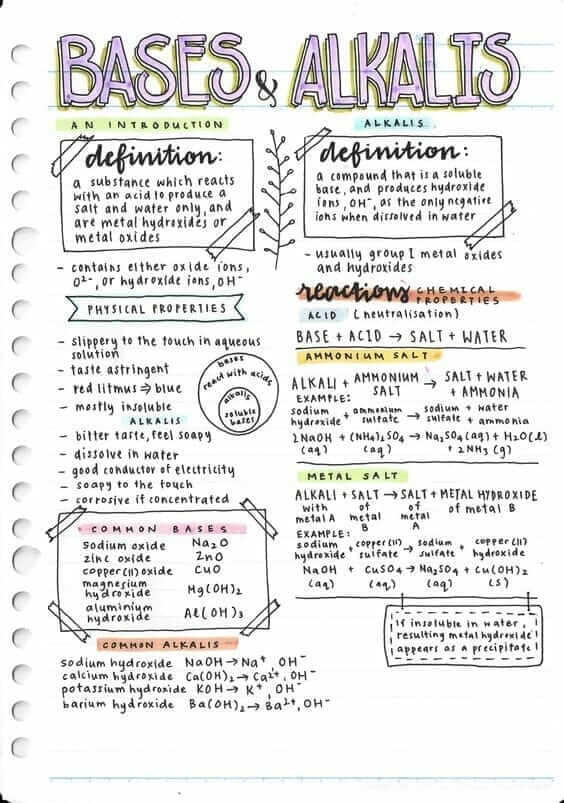 BASES & ALKALIS
AN INTRODUCTION
definition:
a substance which reacts
with an acid to produce a
salt and water only, and
are metal hydroxides or
metal oxides
- contains either oxide ions,
O²⁻, or hydroxide ions, OH⁻
PHYSICAL PROPERTIES
- slippery to the touch in aqueous
solution
- taste astringent
- red litmus ⇒ blue
- mostly insoluble
bases
react with acids
alkalis
soluble
bases
ALKALIS
- bitter taste, feel soapy
- dissolve in water
- good conductor of electricity
- soapy to the touch
- corrosive if concentrated
COMMON BASES
sodium oxide Na₂O
zinc oxide ZnO
copper(II) oxide CuO
magnesium
hydroxide Mg(OH)₂
aluminium
hydroxide Al(OH)₃
COMMON ALKALIS
sodium hydroxide NaOH → Na⁺, OH⁻
calcium hydroxide Ca(OH)₂ → Ca²⁺, OH⁻
potassium hydroxide KOH → K⁺, OH⁻
barium hydroxide Ba(OH)₂ → Ba²⁺, OH⁻
ALKALIS
definition:
a compound that is a soluble
base, and produces hydroxide
ions, OH⁻, as the only negative
ions when dissolved in water
- usually group I metal oxides
and hydroxides
reactions CHEMICAL
PROPERTIES
ACID (neutralisation)
BASE + ACID → SALT + WATER
AMMONIUM SALT
ALKALI + AMMONIUM SALT → SALT + WATER + AMMONIA
EXAMPLE:
sodium hydroxide + ammonium sulfate → sodium sulfate + water + ammonia
2NaOH + (NH₄)₂SO₄ → Na₂SO₄(aq) + H₂O(l)
(aq) (aq) + 2NH₃(g)
METAL SALT
ALKALI + SALT → SALT + METAL HYDROXIDE
with metal A of metal B of metal A of metal B
EXAMPLE:
sodium hydroxide + copper(II) sulfate → sodium sulfate + copper(II) hydroxide
NaOH + CuSO₄ → Na₂SO₄ + Cu(OH)₂
(aq) (aq) (aq) (s)
if insoluble in water,
resulting metal hydroxide
appears as a precipitate!